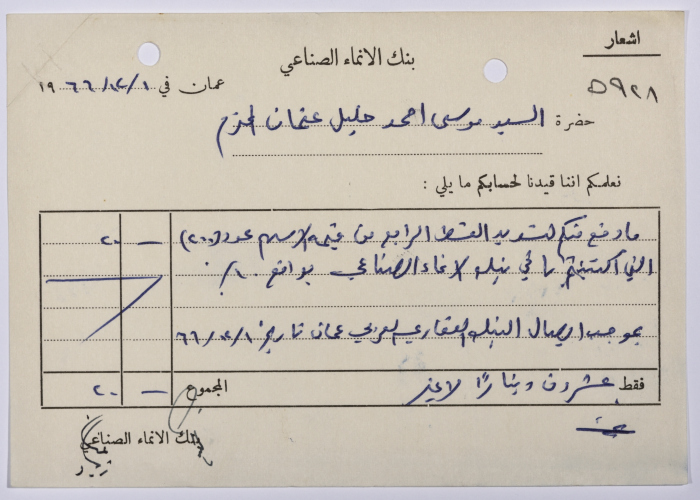 اشعار
بنك الانماء الصناعي
٥٩٢٨
عمان في ١/٣/١٩٦٦
حضرة السيد موسى احمد خليل عثمان المحترم
نعلمكم اننا قيدنا لحسابكم ما يلي :
ما دفع منكم لتسديد القسط الرابع من قيمة الاسهم عدد (٢٠٠) — ٢٠
التي اكتتبتم بها في بنك الانماء الصناعي بواقع ١٠٪
بموجب ايصال البنك العقاري العربي عمان تاريخ ١/٣/٦٦
فقط عشرون دينارًا لا غير المجموع — ٢٠
بنك الانماء الصناعي